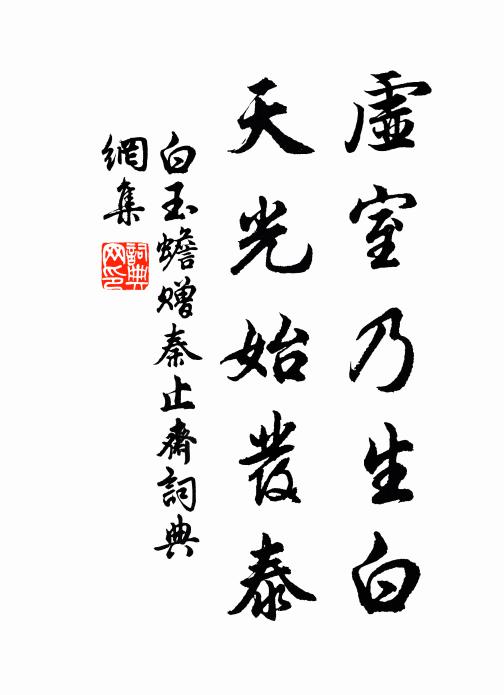 虛室乃生白
天光始發泰
白玉蟾贈秦止齋詞典
網集
詞典
网印